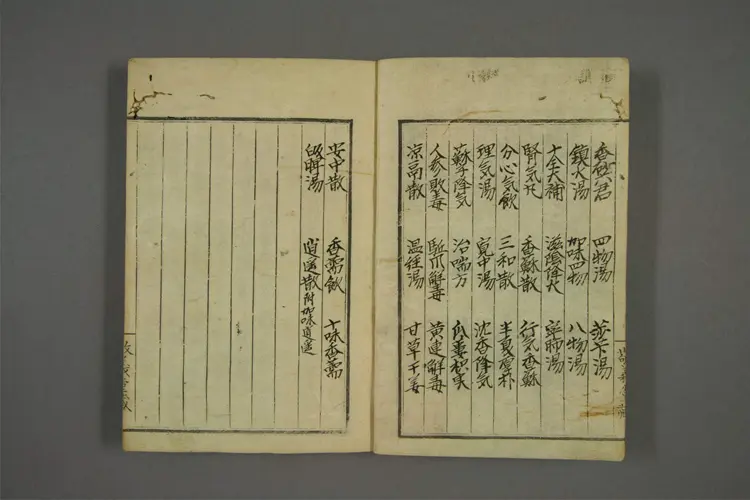 香砂六君 四物湯 莎卜湯
鎮水湯 加味四物 八物湯
十全大補 滋陰降火 寧肺湯
腎気丸 香蘇散 行気香蘇
分心気飲 三和散 半夏厚朴
理気湯 寛中湯 沈香降気
蘇子降気 治喘方 瓜蔞枳実
人参敗毒 駈爪解毒 黄連解毒
凉鬲散 温経湯 甘草干姜
安中散 香薷飲 十味香薷
湯 逍遥散 附加味逍遥